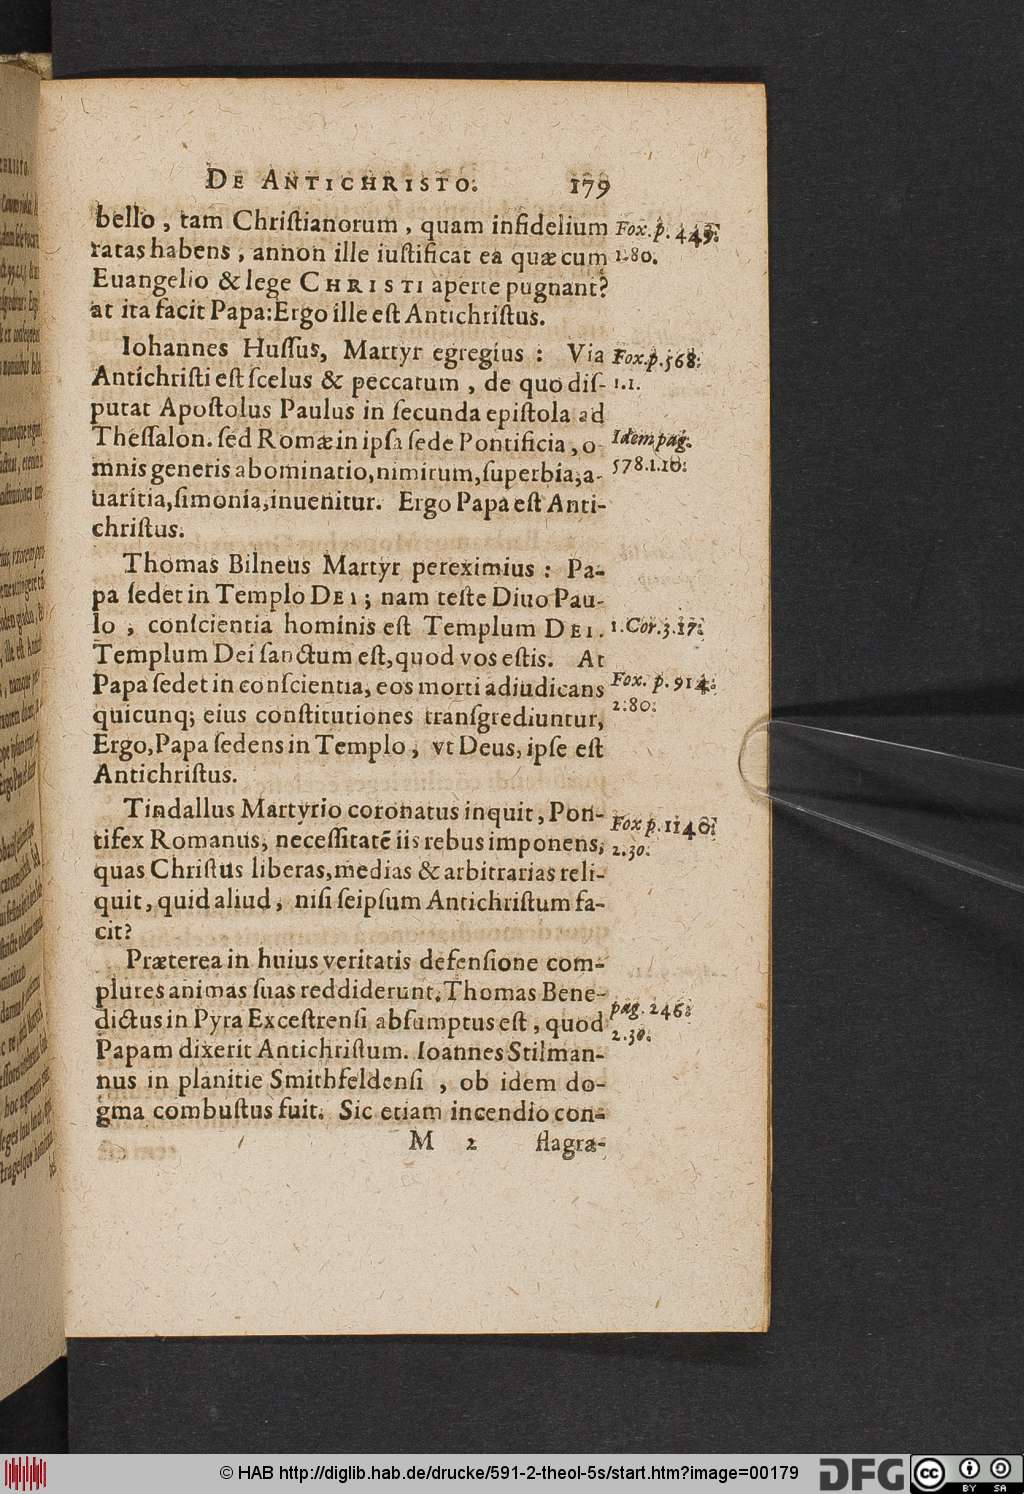 DE ANTICHRISTO. 179
bello, tam Chriſtianorum, quam infidelium
ratas habens, annon ille iuſtificat ea quæ cum
Euangelio & lege CHRISTI aperte pugnant?
at ita facit Papa: Ergo ille eſt Antichriſtus.
Fox. p. 449.
1.80.
Iohannes Huſſus, Martyr egregius: Via
Antichriſti eſt ſcelus & peccatum, de quo diſ-
putat Apoſtolus Paulus in ſecunda epiſtola ad
Theſſalon. ſed Romæ in ipſa ſede Pontificia, o-
mnis generis abominatio, nimirum, ſuperbia, a-
uaritia, ſimonia, inuenitur. Ergo Papa eſt Anti-
chriſtus.
Fox. p. 568.
1.1.
Idem pag.
578.1.10.
Thomas Bilneus Martyr pereximius: Pa-
pa ſedet in Templo DEI; nam teſte Diuo Pau-
lo, conſcientia hominis eſt Templum DEI.
Templum Dei ſanctum eſt, quod vos eſtis. At
Papa ſedet in conſcientia, eos morti adiudicans
quicunq; eius conſtitutiones tranſgrediuntur,
Ergo, Papa ſedens in Templo, vt Deus, ipſe eſt
Antichriſtus.
1. Cor. 3.17.
Fox. p. 914.
2.80.
Tindallus Martyrio coronatus inquit, Pon-
tifex Romanus, neceſſitatē iis rebus imponens,
quas Chriſtus liberas, medias & arbitrarias reli-
quit, quid aliud, niſi ſeipſum Antichriſtum fa-
cit?
Fox p. 1140.
2.30.
Præterea in huius veritatis defenſione com-
plures animas ſuas reddiderunt. Thomas Bene-
dictus in Pyra Exceſtrenſi abſumptus eſt, quod
Papam dixerit Antichriſtum. Ioannes Stilman-
nus in planitie Smithfeldenſi, ob idem do-
gma combuſtus fuit. Sic etiam incendio con-
pag. 246.
2.30.
M 2 flagra-
© HAB http://diglib.hab.de/drucke/591-2-theol-5s/start.htm?image=00179
DFG
cc
BY SA